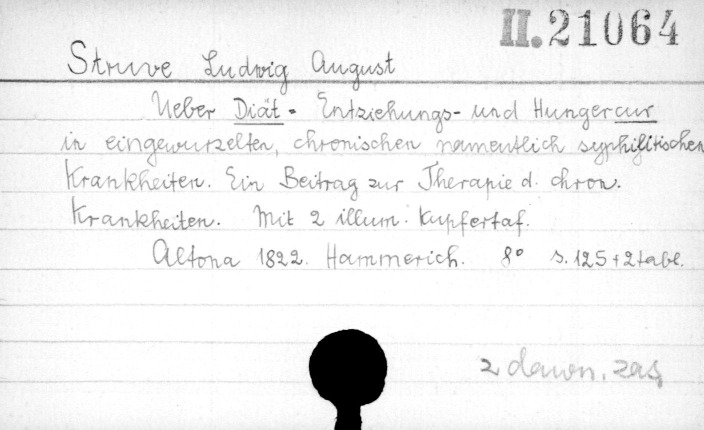 II. 21064
Struve Ludwig August
Ueber Diät- Entziehungs- und Hungercur
in eingewurzelten, chronischen namentlich syphilitischen
Krankheiten. Ein Beitrag zur Therapie d. chron.
Krankheiten. Mit 2 illum. Kupfertaf.
Altona 1822. Hammerich. 8° s. 125 + 2 tabl.
z dawn. zas.